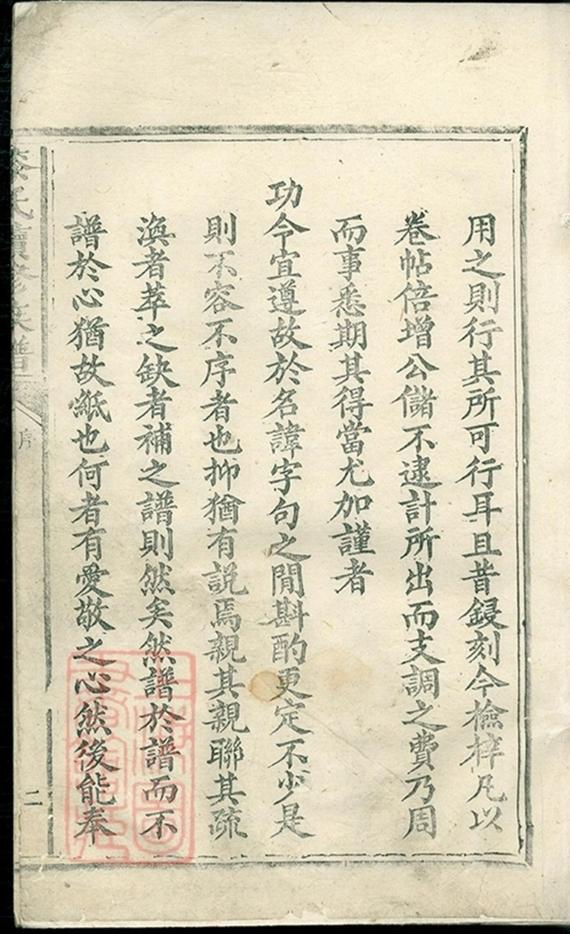 用之則行其所可行耳且昔鋟刻今檢梓凡以
卷帖倍增公儲不逮計所出而支調之費乃周
而事悉期其得當尤加謹者
功令宜遵故於名諱字句之閒斟酌更定不少是
則不容不序者也抑猶有説焉親其親聯其疏
渙者萃之缺者補之譜則然矣然譜於譜而不
譜於心猶故紙也何者有愛敬之心然後能奉
氏續修族譜
序
二